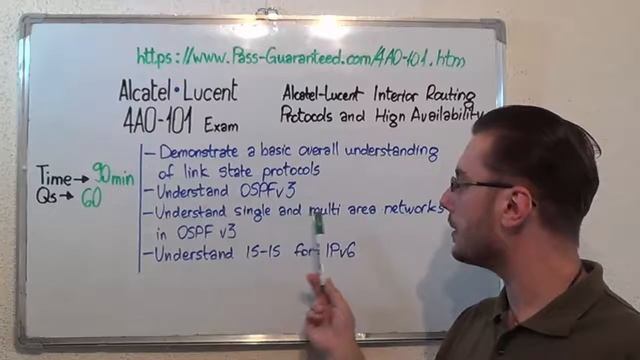 https://www.Pass-Guaranteed.com/4A0-101.htm
Alcatel•Lucent
4A0-101 Exam
Alcatel-Lucent Interior Routing
Protocols and High Availability
Time→90min
Qs→60
-Demonstrate a basic overall understanding
of link state protocols
-Understand OSPFv3
-Understand single and multi area networks
in OSPF v3
-Understand IS-IS for IPv6